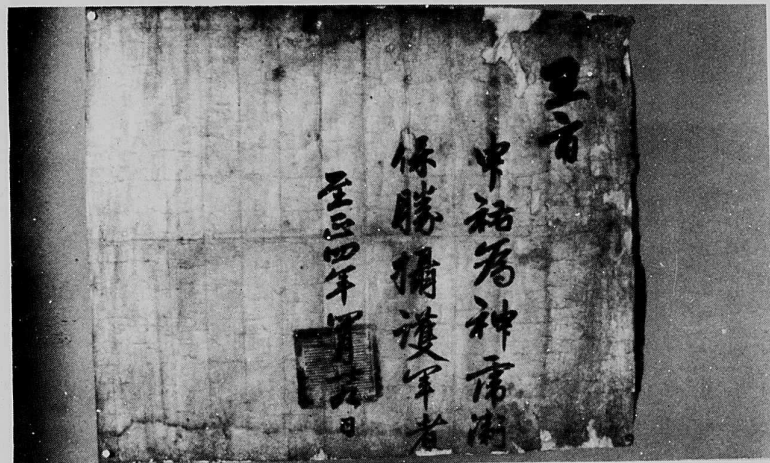 王旨
申祐爲神虎衛
保勝攝護軍者
至正四年四月日